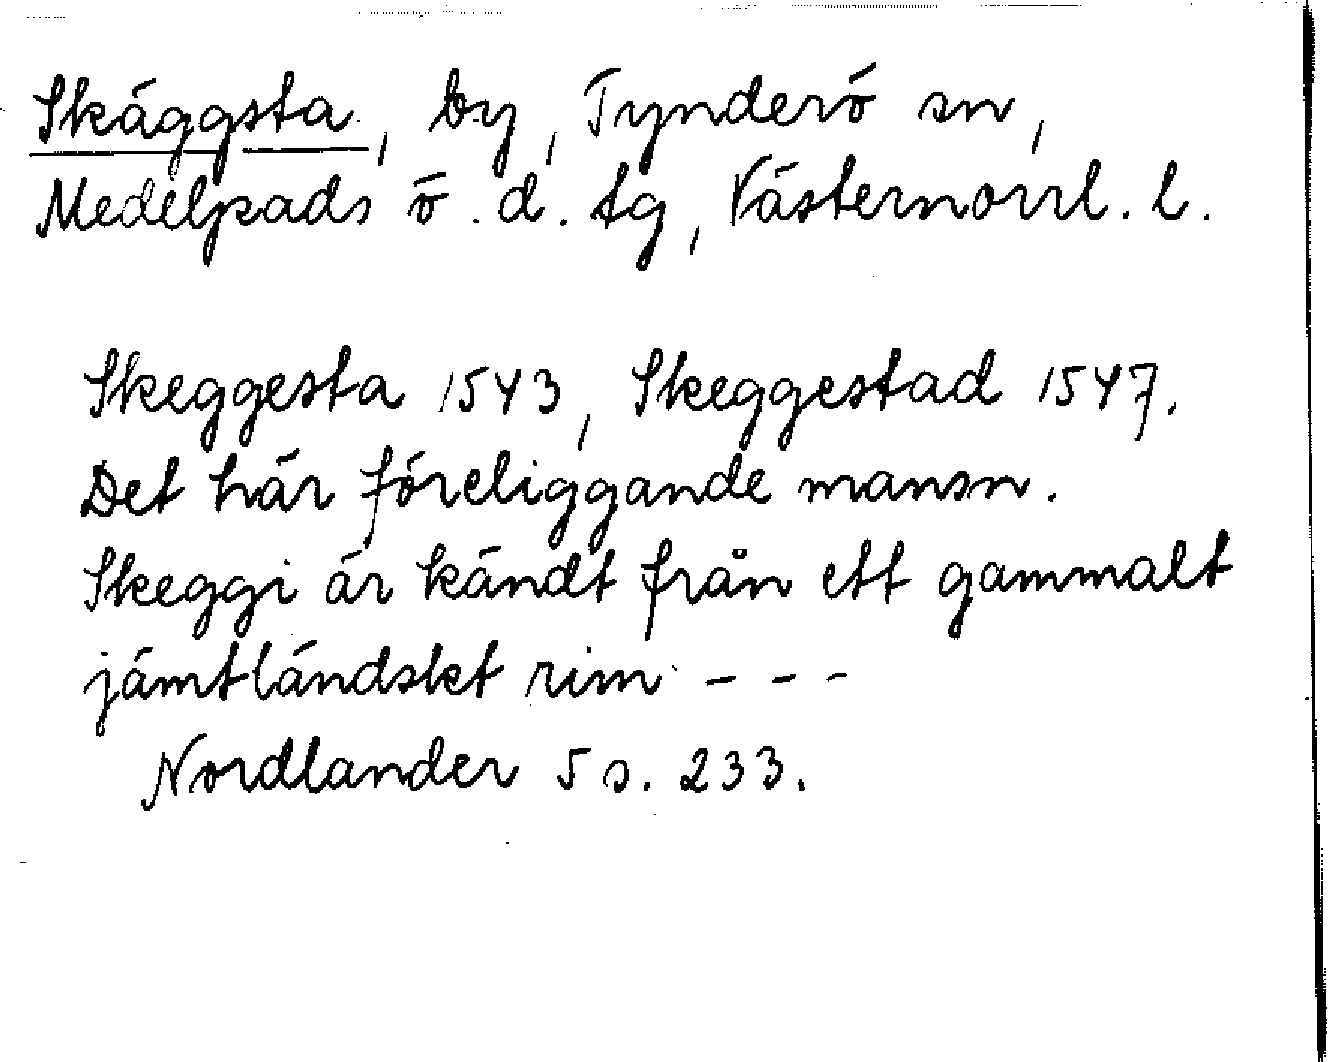 Skäggsta, by, Tynderö sn,
Medelpads ö. d. tg, Västernorrl. l.
Skeggesta 1543, Skeggestad 1547.
Det här föreliggande mansn.
Skeggi är kändt från ett gammalt
jämtländskt rim - - -
Nordlander 5 s. 233.